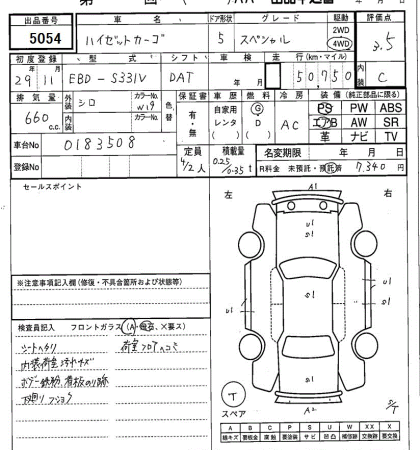 出品番号 車名 ドア形状 グレード 駆動 評価点
5054 ハイゼットカーゴ 5 スペシャル 2WD 4WD 3.5
初度登録 型式 シフト 車検 走行(km・マイル) 内装
29年11月 EBD-S331V DAT 年 月 50,750 C
排気量 外装 シロ カラーNo. W19 色替 保証書 車歴 燃料 冷房 装備(純正部品に限る)
660 c.c. 内装 カラーNo. 有・無 自家用 レンタ G D AC PS PW ABS
エアB AW SR
革 ナビ TV
車台No 0183508 定員 4/2人 積載量 0.25/0.35t 名変期限 年 月 日
登録No R料金 未預託・預託済 7,340円
セールスポイント
左 右
A1
U1
S1
U1 S1 U1
S1
※注意事項記入欄(修復・不具合箇所および状態等)
検査員記入 フロントガラス(A・飛石、×要ス)
シートヘタリ 荷室フロアヘコミ
内装荷室汚れキズ
下廻りフショク
T
スペア
A2
A B C P S U W X XX
線キズ 要板金 腐食 要塗装 サビ 凹凸 補修跡 交換跡 要交換